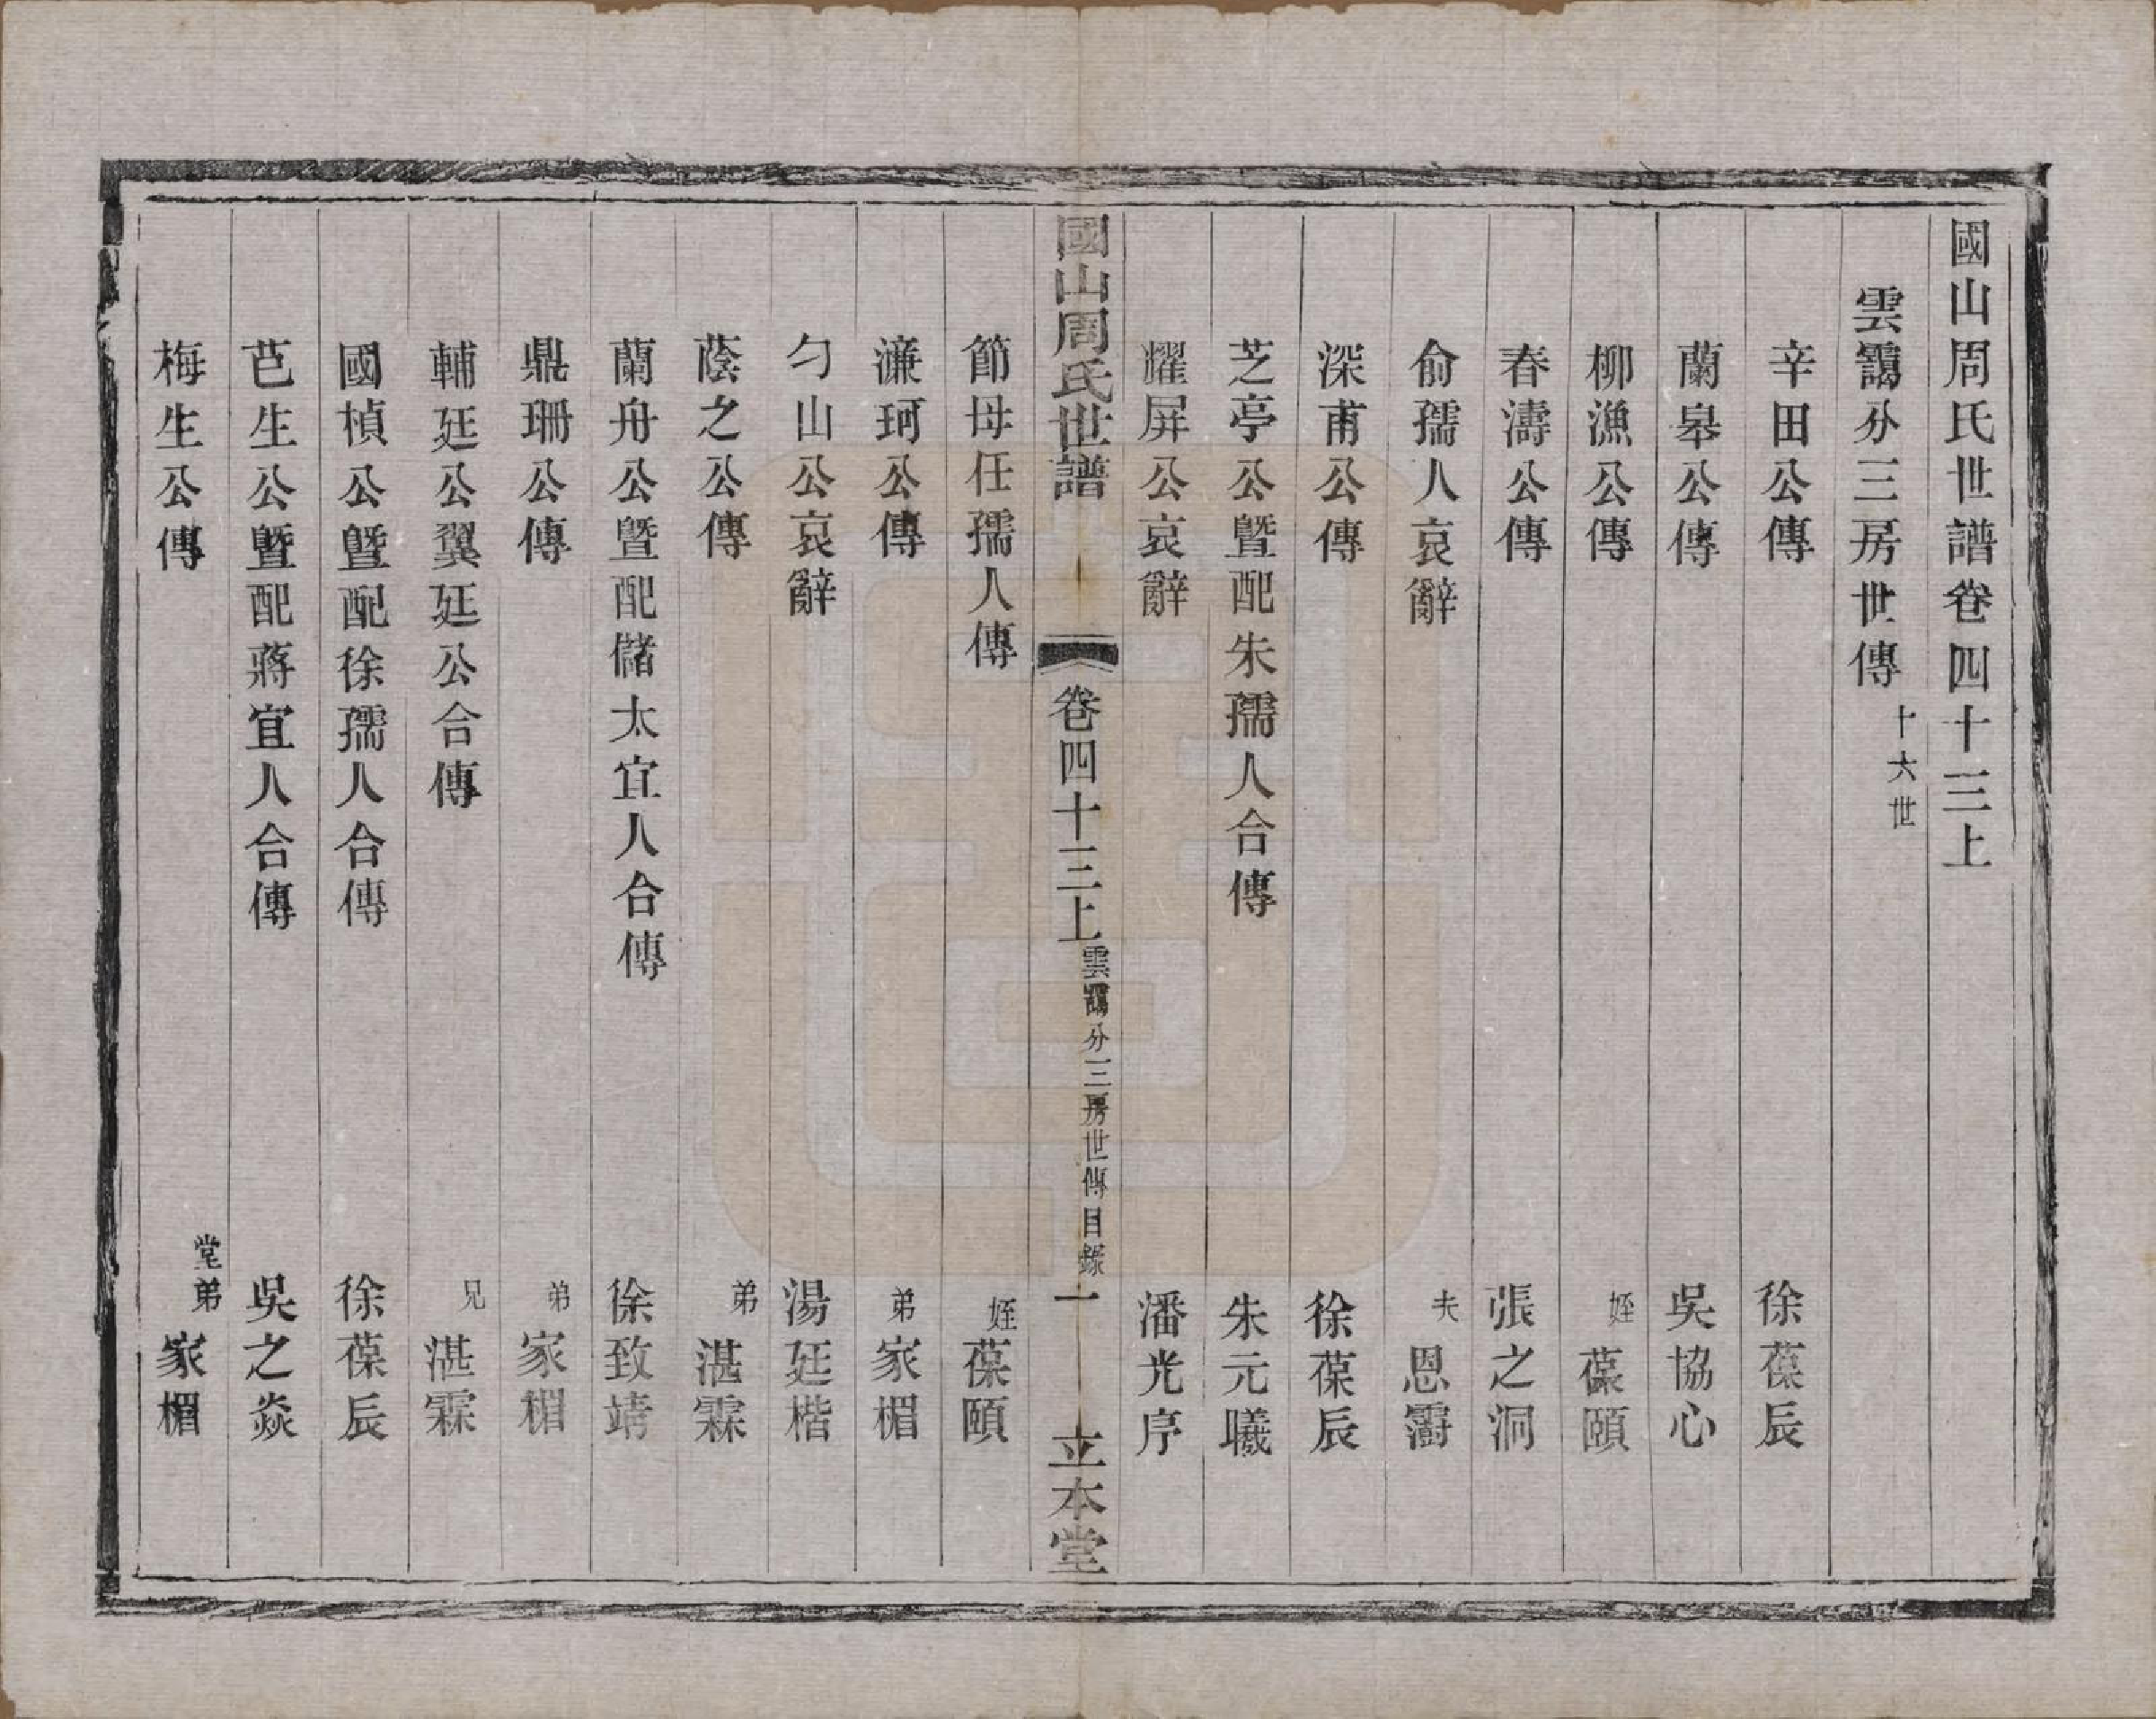 國山周氏世譜卷四十三上
雲靄分三房世傳 十六世
辛田公傳 徐葆辰
蘭皋公傳 吳協心
柳漁公傳 姪葆頤
春濤公傳 張之洞
俞孺人哀辭 夫恩霨
深甫公傳 徐葆辰
芝亭公暨配朱孺人合傳 朱元曦
耀屏公哀辭 潘光序
國山周氏世譜 卷四十三上 雲靄分三房世傳目錄 一 立本堂
節母任孺人傳 姪葆頤
濂珂公傳 弟家楣
勺山公哀辭 湯廷楷
蔭之公傳 弟湛霖
蘭舟公暨配儲太宜人合傳 徐致靖
鼎珊公傳 弟家楣
輔廷公翼廷公合傳 兄湛霖
國楨公暨配徐孺人合傳 徐葆辰
芑生公暨配蔣宜人合傳 吳之焱
梅生公傳 堂弟家楣